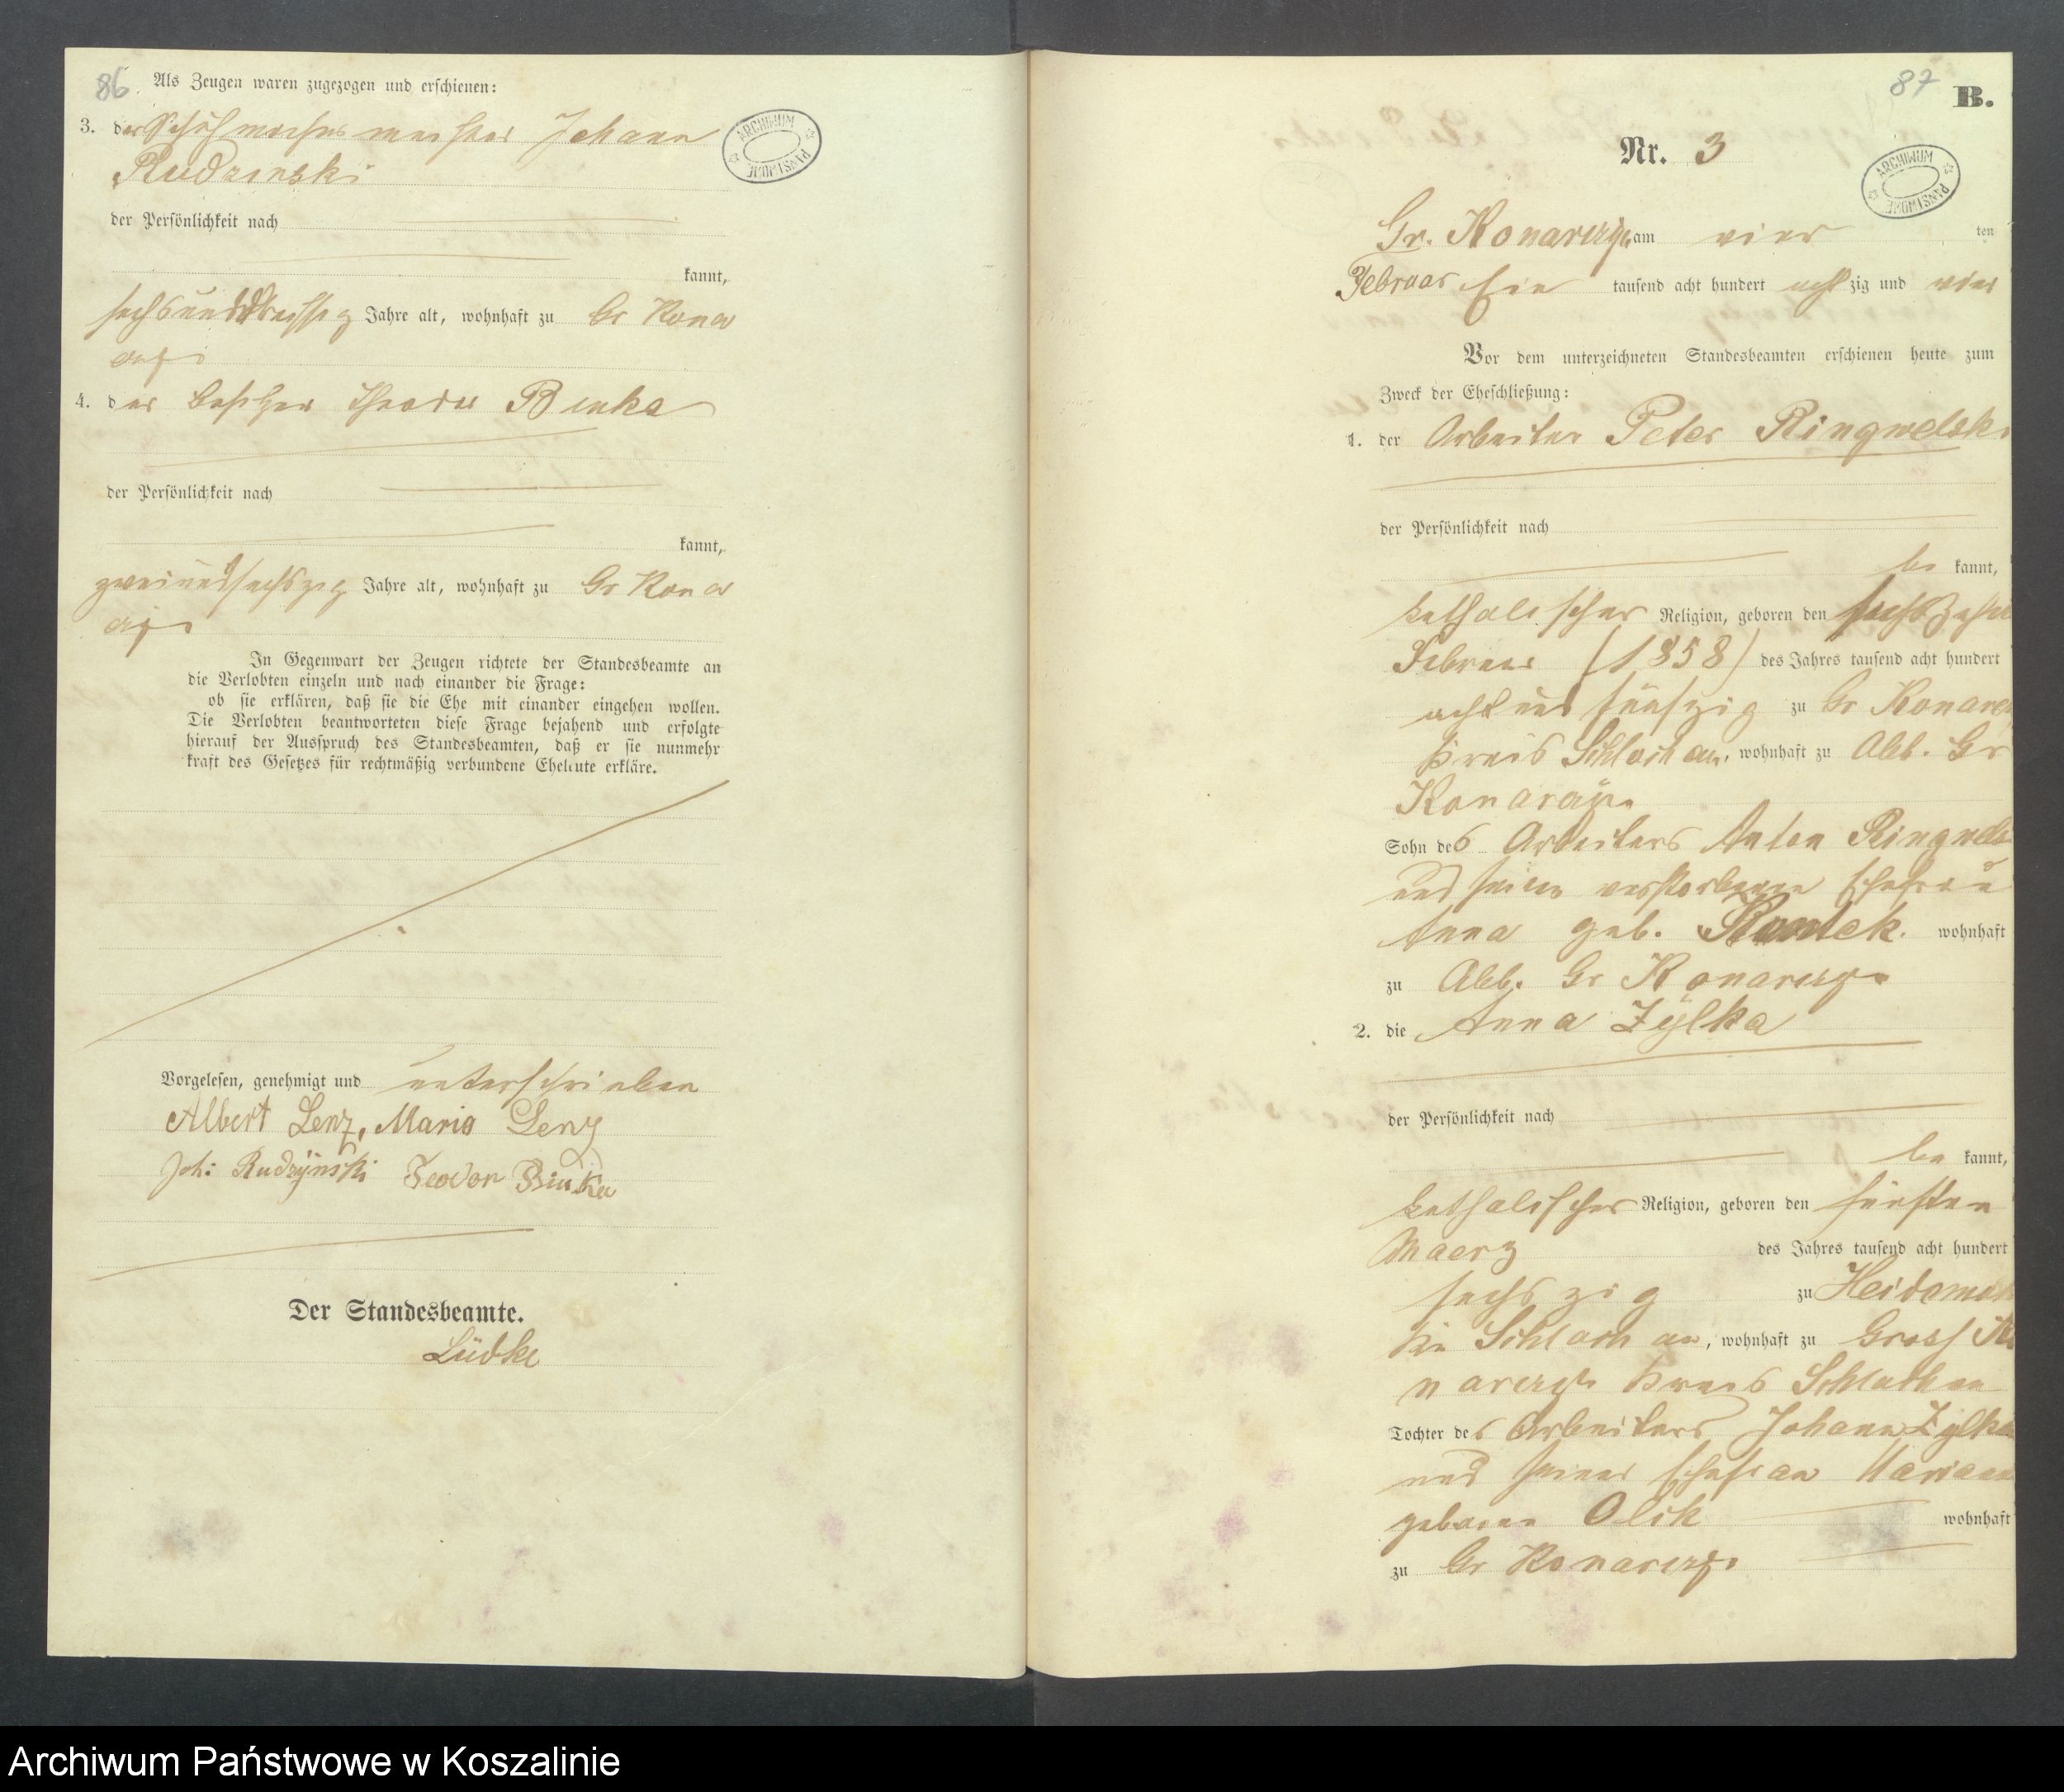 86.
Als Zeugen waren zugezogen und erschienen:
3. der Schuhmachermeister Johann
Rudzinski
der Persönlichkeit nach
kannt,
sechsunddreissig Jahre alt, wohnhaft zu Gr Kona
4. der Besitzer Theodor Binka
der Persönlichkeit nach
kannt,
zweiundsechszig Jahre alt, wohnhaft zu Gr Kona
In Gegenwart der Zeugen richtete der Standesbeamte an
die Verlobten einzeln und nach einander die Frage:
ob sie erklären, daß sie die Ehe mit einander eingehen wollen.
Die Verlobten beantworteten diese Frage bejahend und erfolgte
hierauf der Ausspruch des Standesbeamten, daß er sie nunmehr
kraft des Gesetzes für rechtmäßig verbundene Eheleute erkläre.
Vorgelesen, genehmigt und unterschrieben
Albert Lenz, Maria Lenz
Joh: Rudzÿnski Teodor Binka
Der Standesbeamte.
Lüdke
ARCHIWUM PAŃSTWOWE
87
B.
Nr. 3
ARCHIWUM PAŃSTWOWE
Gr. Konarczyn am vier ten
Februar Ein tausend acht hundert acht zig und vier
Vor dem unterzeichneten Standesbeamten erschienen heute zum
Zweck der Eheschließung:
1. der Arbeiter Peter Ringwelski
der Persönlichkeit nach
be kannt,
katholischer Religion, geboren den sechszehn
Februar (1858) des Jahres tausend acht hundert
acht und fünfzig zu Gr Konarc
Kreis Schlochau, wohnhaft zu Abb. Gr
Sohn des Arbeiters Anton Ringwels
und seiner verstorbenen Ehefrau
Anna geb. wohnhaft
zu Abb. Gr Konarczyn
2. die Anna Zÿlka
der Persönlichkeit nach
be kannt,
katholischer Religion, geboren den fünften
Maerz des Jahres tausend acht hundert
sechszig zu
Schlochau, wohnhaft zu Gross Ko
narczyn Kreis Schlochau
Tochter des Arbeiters Johann Zylka
und seiner Ehefrau Mariann
geboren Olik wohnhaft
zu Gr Konarczyn
Archiwum Państwowe w Koszalinie